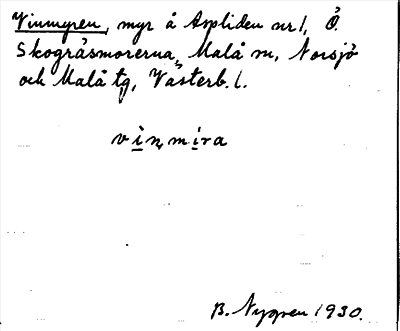 Vinmyren, myr å Aspliden nr 1, Ö.
Skogråsmorerna, Malå sn, Norsjö
och Malå tg, Västerb. l.
vi̱n, mi̱ra
B. Nygren 1930.